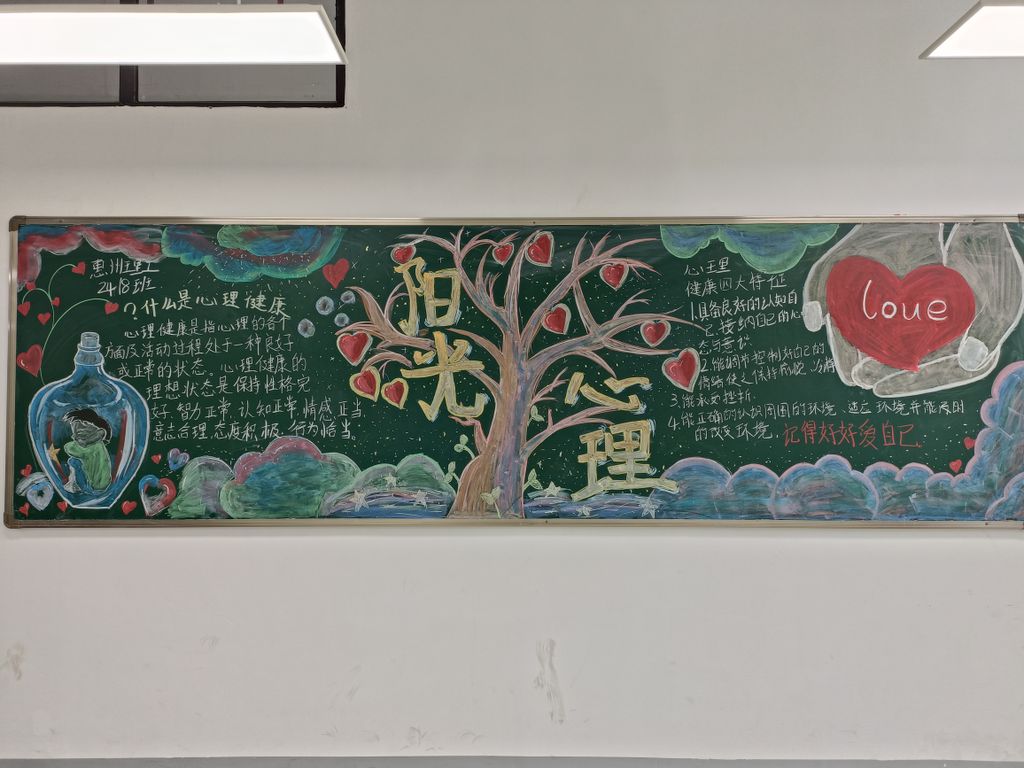 惠州理工
2418班
?什么是心理健康
心理健康是指心理的各个
方面及活动过程处于一种良好
或正常的状态。心理健康的
理想状态是保持性格完
好,智力正常,认知正常,情感正当
意志合理,态度积极,行为恰当。
阳光
心理
心理
健康四大特征
1.具备良好的认知自
己,接纳自己的心
态与意识
2.能调节控制好自己的
情绪使之保持愉悦
3.能承受挫折
4.能正确的认识周围的环境 适应环境并能及时
的改变环境
记得好好爱自己
love